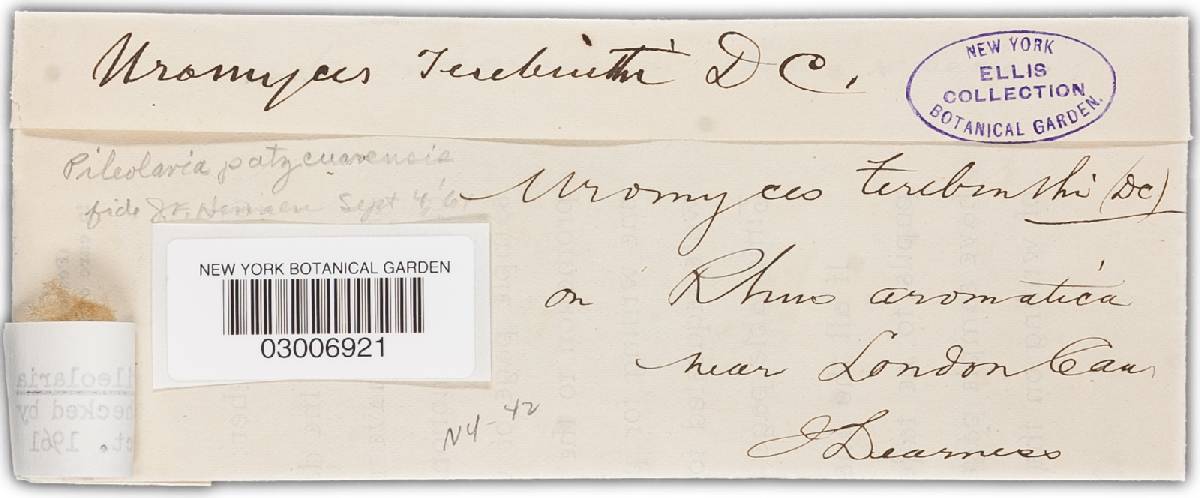 Uromyces Terebinthi D C.
NEW YORK
ELLIS
COLLECTION
BOTANICAL GARDEN.
Pileolaria patzcuarensis
fide Sept 4, '61
Uromyces terebinthi (DC)
NEW YORK BOTANICAL GARDEN
03006921
on Rhus aromatica
near London Can
J Dearness
N4-42
lleolaria
hecked by
ct. 1961